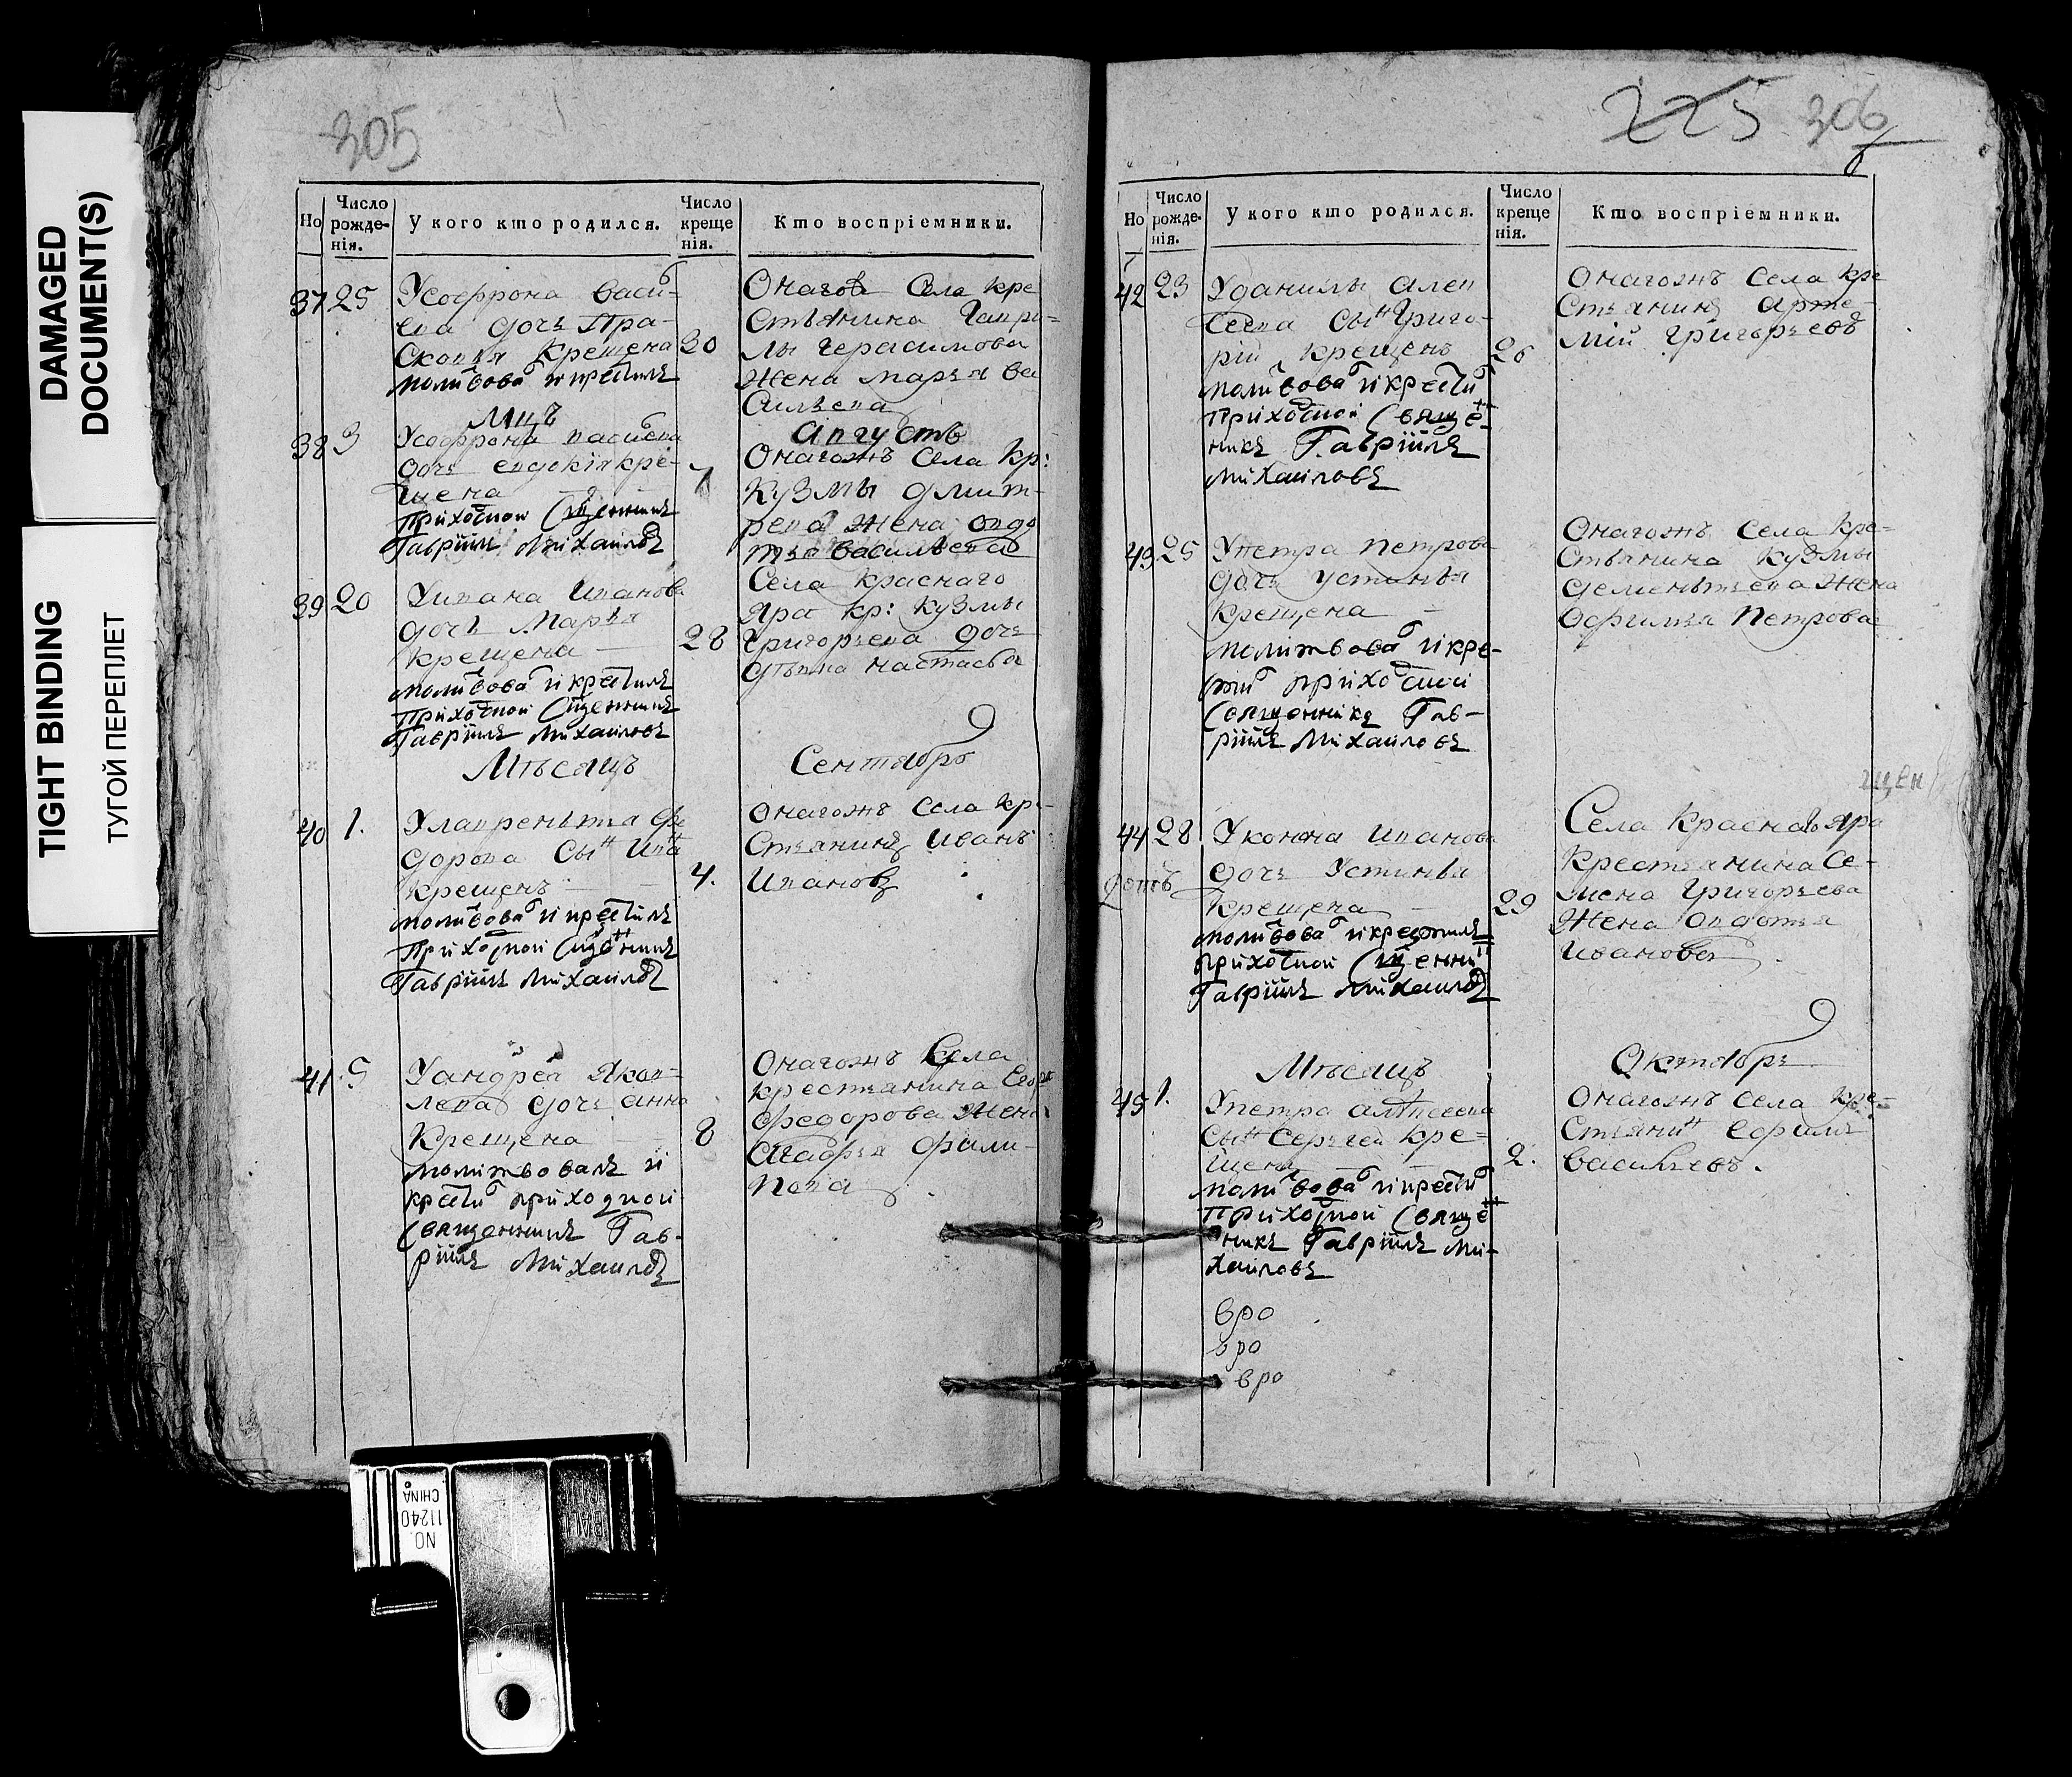 DAMAGED
DOCUMENT(S)
TIGHT BINDING
ТУГОЙ ПЕРЕПЛЕТ
305
Но
Число рожденія.
У кого кто родился.
Число крещенія.
Кто воспріемники.
37 25
Усофрона васи=
ева дочь Пра-
сковья крещена 30
молитвова и крестилъ
Онагож Села кре
стьянина Гаври=
лы герасимова
жена марья ва
сильева
Мцъ
Августъ
38 3
Усофрона васильева
дочь евдокія кре-
щена 7
Приходной Священникъ
Гавріилъ Михаиловъ
Онагожъ Села кр:
Кузмы дмит-
рева жена овдо
тья васильева
39 20
Уивана иванова
дочь Марья
крещена 28
молитвова и крестилъ
Приходной Священникъ
Гавріилъ Михаиловъ
Села краснаго
яра кр: кузмы
григорьева дочь
девка настасья
Мѣсяцъ
Сентябрь
40 1.
Улаврентья фе
дорова сынъ ива
крещенъ 4.
молитвова и крестилъ
Приходной Священникъ
Гавріилъ Михаиловъ
Онагожъ Села кре-
стьянинъ иванъ
ивановъ
41 5
Уандрея Яков=
лева дочь анна
Крещена 8
молитвовалъ и
крести приходной
Священникъ Гав-
ріилъ Михаиловъ
Онагожъ Села
крестьянина Егора
федорова жена
Агафья фили-
пова
225 306
Но
Число рожденія.
У кого кто родился.
Число крещенія.
Кто воспріемники.
42 23
Уданилы алек
сеева сынъ григо-
рій крещенъ 26
молитвова и крести
Приходной Священ=
никъ Гавріилъ
Михаиловъ
Онагожъ Села кре
стьянинъ арте-
мій григорьевъ
43 25
Упетра петрова
дочь устинья
крещена
молитвова и кре-
сти приходной
Священникъ Гав-
ріилъ Михаиловъ
Онагожъ Села кре=
стьянина кузмы
дементьева жена
Офимья петрова
44 28
Уконона иванова
дочь Устинья
крещена 29
молитвова и крестилъ
приходной Священни
Гавріилъ Михаиловъ
Села Краснаго яра
крестьянина Се-
мена григорьева
жена Овдотья
иванова
Мѣсяцъ
Октябрь
45 1.
Упетра алѣксеева
сынъ Сергей кре=
щенъ 2.
молитвова и крести
Приходной Священ
никъ Гавріилъ Ми-
хаиловъ
Онагожъ Села кре-
стьянинъ Ефимъ
васильевъ.
вро
вро
вро
NO.
11240
CHINA